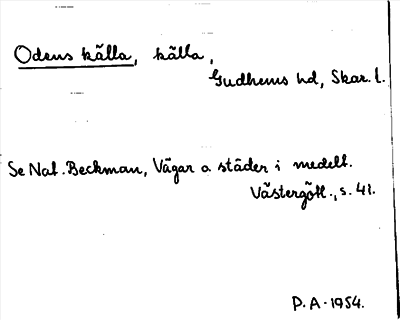 Odens källa, källa,
Gudhems hd, Skar. l.
Se Nat. Beckman, Vägar o städer i medelt.
Västergötl., s. 41.
P.A. 1954.